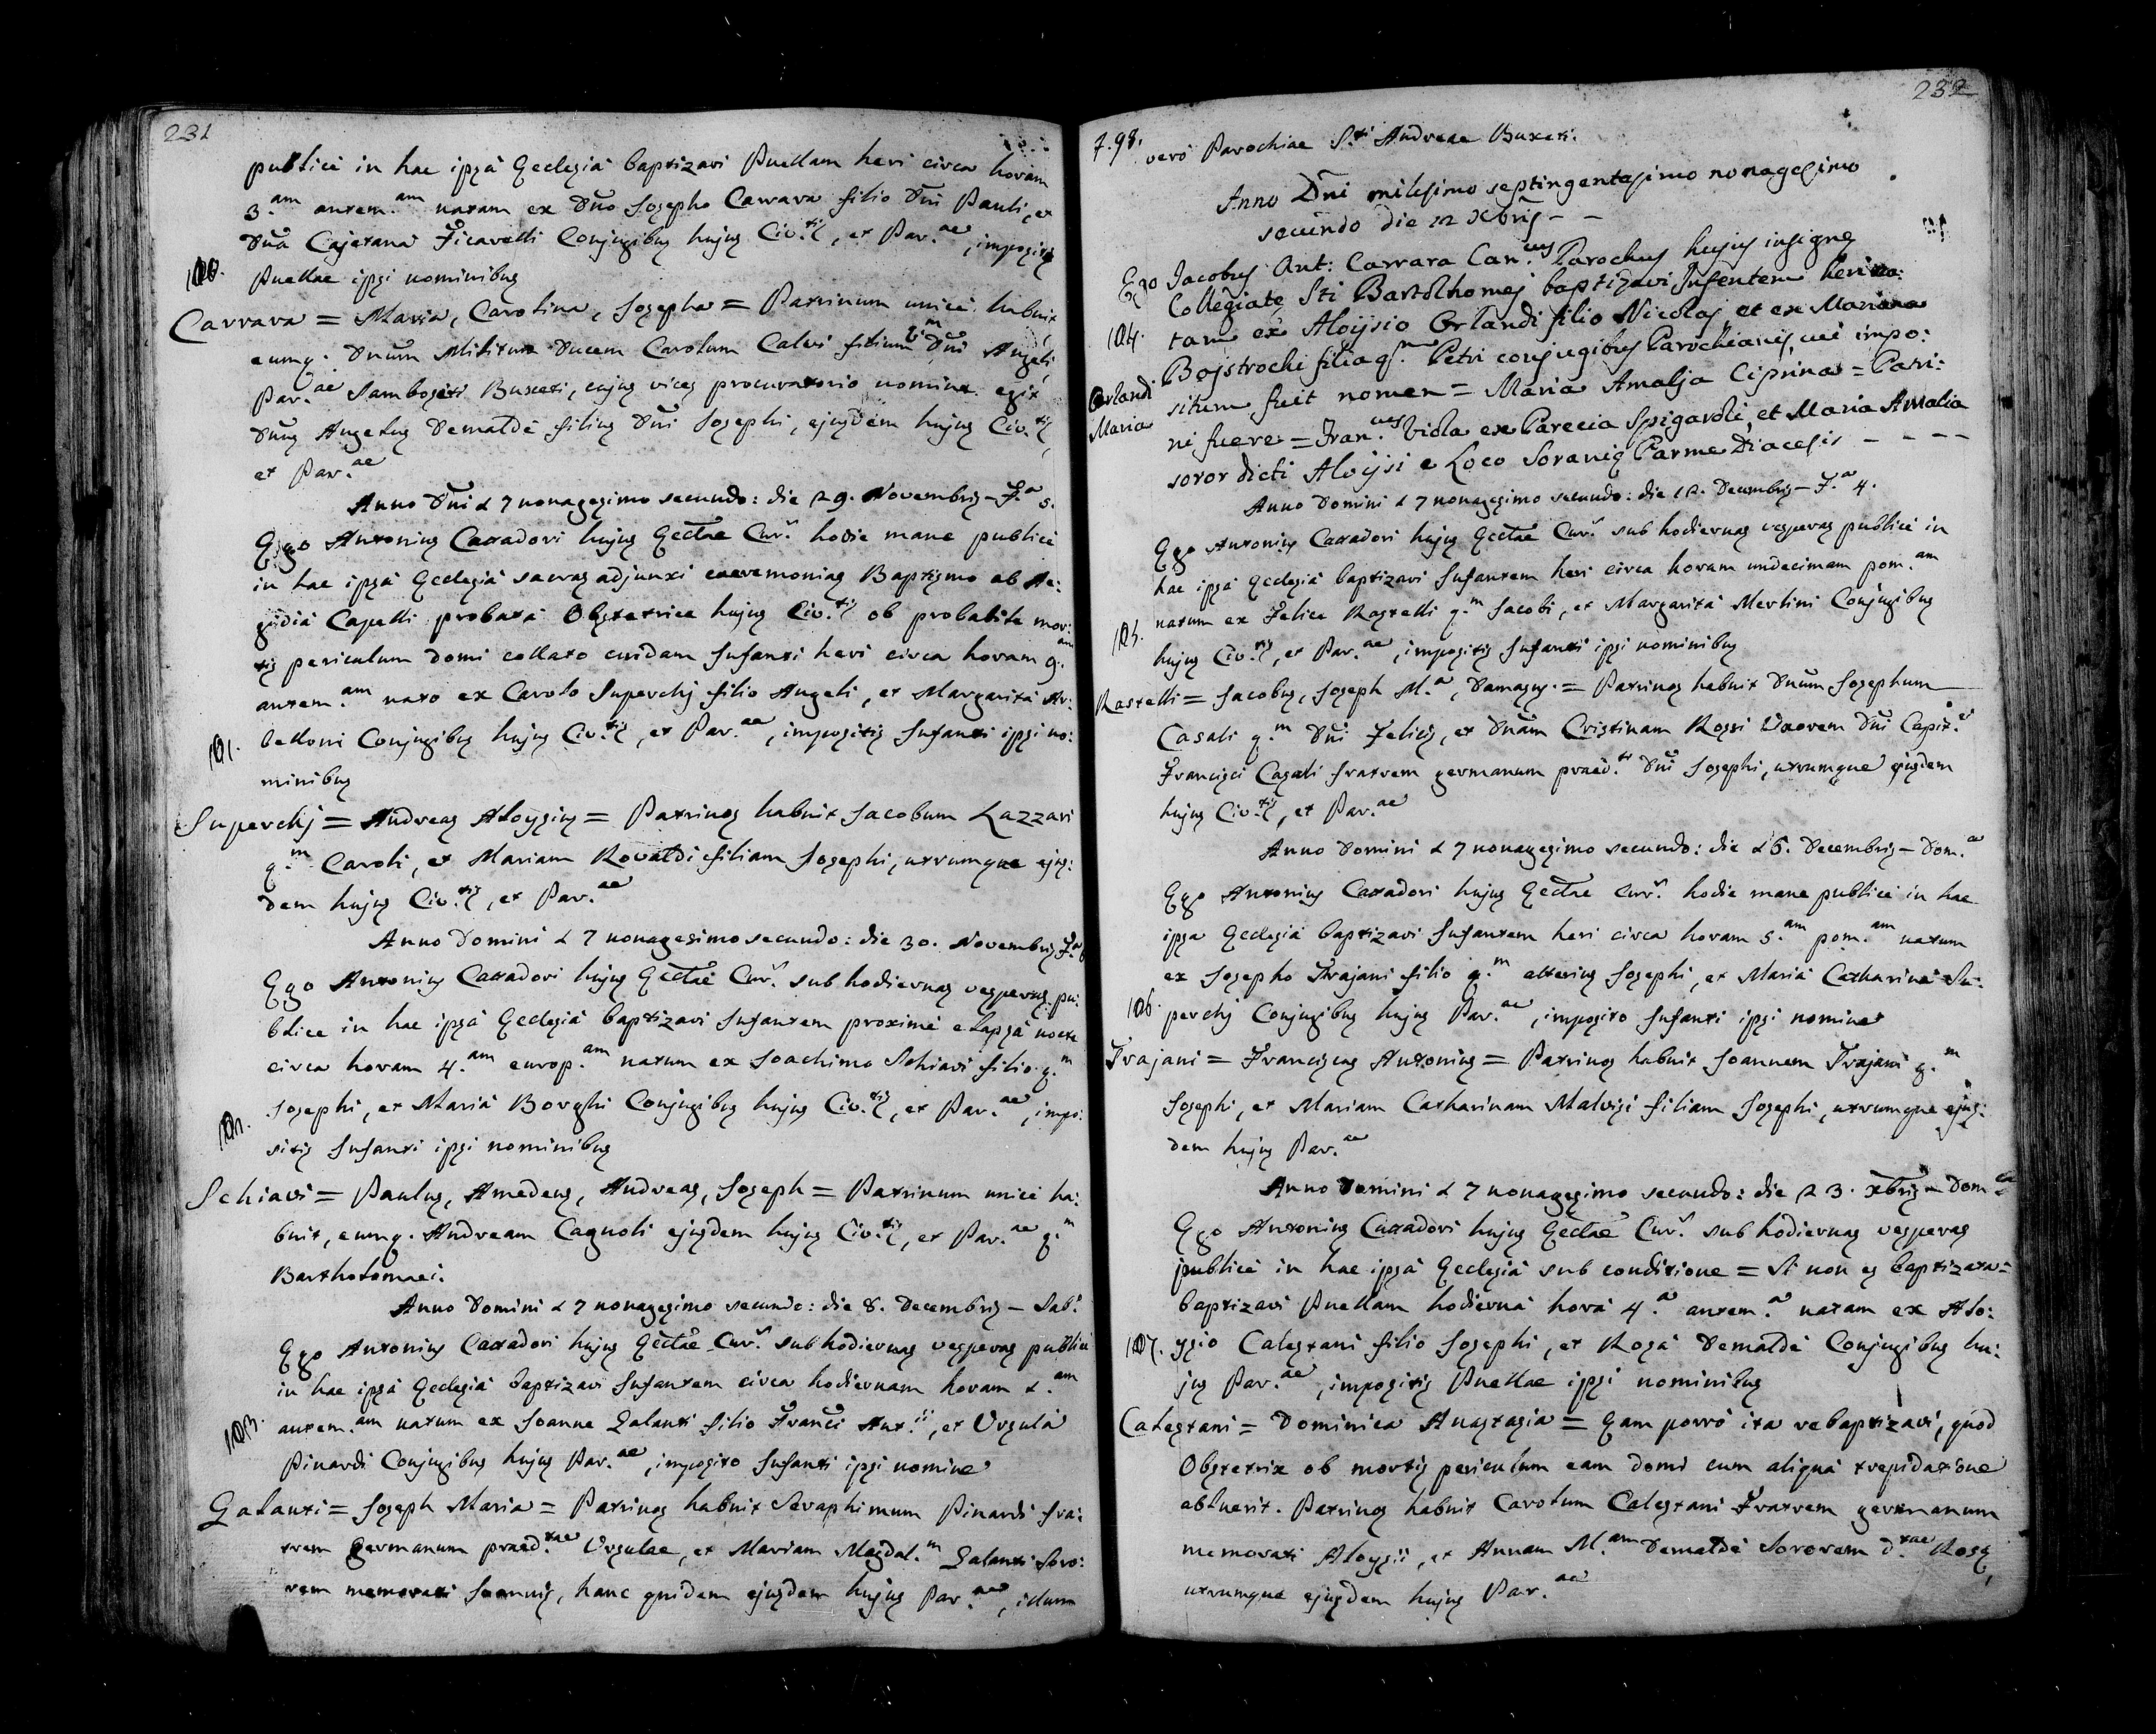 231
publicè in hac ipsâ Ecclesiâ baptizavi Puellam heri circa horam
3.am antem.am natam ex Dno Josepho Carrara filio Dni Pauli, et
Dnâ Cajetanâ Ficarelli Conjugibus hujus Civ.tis, et Par.ae, impositis
100.
Puellae ipsi nominibus
Carrara = Maria, Carolina, Josepha = Patrinum unicè habuit
eumq. Dnum Militum Ducem Carolum Calvi filium Dni Angeli
Par.ae Samboseti Buxeti, cujus vices procuratorio nomine egit
Dnus Angelus Demaldè filius Dni Josephi, ejusdem hujus Civ.tis,
et Par.ae
Anno Dni 17 nonagesimo secundo: die 29. Novembris - F.a 5.
Ego Antonius Carradori hujus Ecctae Cur.s hodie mane publicè
in hac ipsâ Ecclesiâ sacras adjunxi caeremonias Baptismo ab Ae:
gidiâ Capelli probatâ Obstetrice hujus Civ.tis ob probabile mor:
tis periculum domi collato cuidam Infanti heri circa horam 9.am
antem.am nato ex Carolo Superchj filio Angeli, et Margaritâ Ar:
belloni Conjugibus hujus Civ.tis, et Par.ae, impositis Infanti ipsi no:
101.
minibus
Superchj = Andreas Aloysius = Patrinos habuit Jacobum Lazzari
q.m Caroli, et Mariam Rovaldi filiam Josephi, utrumque ejus:
dem hujus Civ.tis, et Par.ae
Anno Domini 17 nonagesimo secundo: die 30. Novembris F.a 6
Ego Antonius Carradori hujus Ecctae Cur.s sub hodiernas vesperas pu:
blice in hac ipsâ Ecclesiâ baptizavi Infantem proximè elapsâ nocte
circa horam 4.am europ.am natum ex Joachimo Schiavi filio q.m
Josephi, et Mariâ Borghi Conjugibus hujus Civ.tis, et Par.ae, impo:
102.
sitis Infanti ipsi nominibus
Schiavi = Paulus, Amedeus, Andreas, Joseph = Patrinum unicè ha:
buit, eumq. Andream Cagnoli ejusdem hujus Civ.tis, et Par.ae q.m
Bartholomaei.
Anno Domini 17 nonagesimo secundo: die 8. Decembris - Sab.
Ego Antonius Carradori hujus Ecctae Cur.s sub hodiernas vesperas publicè
in hac ipsâ Ecclesiâ baptizavi Infantem circa hodiernam horam 1.am
103.
antem.am natum ex Joanne Galanti filio Franci Ant.ii, et Ursulâ
Pinardi Conjugibus hujus Par.ae, imposito Infanti ipsi nomine
Galanti = Joseph Maria = Patrinos habuit Seraphinum Pinardi fra:
trem germanum praed.tae Ursulae, et Mariam Magdal.m Galanti Soro:
rem memorati Joannis, hanc quidem ejusdem hujus Par.ae, illum
232
7.98.
verò Parochiae S.ti Andreae Buxeti.
Anno Dni milesimo septingentesimo nonagesimo
secundo die 12 Xbris - -
Ego Jacobus Ant: Carrara Can.cus Parochus hujus insigne
Collegiate Sti Bartolhomej baptizavi Infentem heri na:
104.
tam ex Aloijsio Orlandi filio Nicolaj et ex Mariana
Bojstrochi filia q.m Petri conjugibus Parochianis, cui impo:
Orlandi
Maria
situm fuit nomen = Maria Amalja Ciprina = Patri:
ni fuere = Fran.cus Viola ex Parecia Spigaroli, et Maria Amalia
soror dicti Aloijsi e Loco Soranie Parme Diacesis - - - -
Anno Domini 17 nonagesimo secundo: die 12. Decembris - F.a 4.
Ego Antonius Carradori hujus Ecctae Cur.s sub hodiernas vesperas publicè in
hac ipsâ Ecclesiâ baptizavi Infantem heri circa horam undecimam pom.am
natum ex Felice Rastelli q.m Jacobi, et Margaritâ Merlini Conjugibus
105.
hujus Civ.tis, et Par.ae, impositis Infanti ipsi nominibus
Rastelli = Jacobus, Joseph M.a, Damasus = Patrinos habuit Dnum Josephum
Casali q.m Dni Felicis, et Dnam Cristinam Rossi Uxorem Dni Capit.
Francisci Casali fratrem germanum praed.ti Dni Josephi, utrumque ejusdem
hujus Civ.tis, et Par.ae
Anno Domini 17 nonagesimo secundo: die 16. Decembris - Dom.ca
Ego Antonius Carradori hujus Ecctae Cur.s hodie mane publicè in hac
ipsa Ecclesiâ baptizavi Infantem heri circa horam 5.am pom.am natum
ex Josepho Trajani filio q.m alterius Josephi, et Mariâ Catharinâ Su:
106.
perchj Conjugibus hujus Par.ae, imposito Infanti ipsi nomine
Trajani = Franciscus Antonius = Patrinos habuit Joannem Trajani q.m
Josephi, et Mariam Catharinam Malvisi filiam Josephi, utrumque ejus:
dem hujus Par.ae
Anno Domini 17 nonagesimo secundo: die 23. Xbris - Dom.ca
Ego Antonius Carradori hujus Ecctae Cur.s sub hodiernas vesperas
publicè in hac ipsâ Ecclesiâ sub conditione = Si non es baptizata =
baptizavi Puellam hodiernâ horâ 4.a antem.a natam ex Alo:
107.
ysio Calestani filio Josephi, et Rosâ Demaldè Conjugibus hu:
jus Par.ae, impositis Puellae ipsi nominibus
Calestani = Dominica Anastasia = Eam porrò ita rebaptizavi, quod
Obstetrix ob mortis periculum eam domi cum aliquâ trepidatione
abluerit. Patrinos habuit Carolum Calestani Fratrem germanum
memorati Aloysii, et Annam M.am Demaldè Sororem d.tae Rosę,
utrumque ejusdem hujus Par.ae